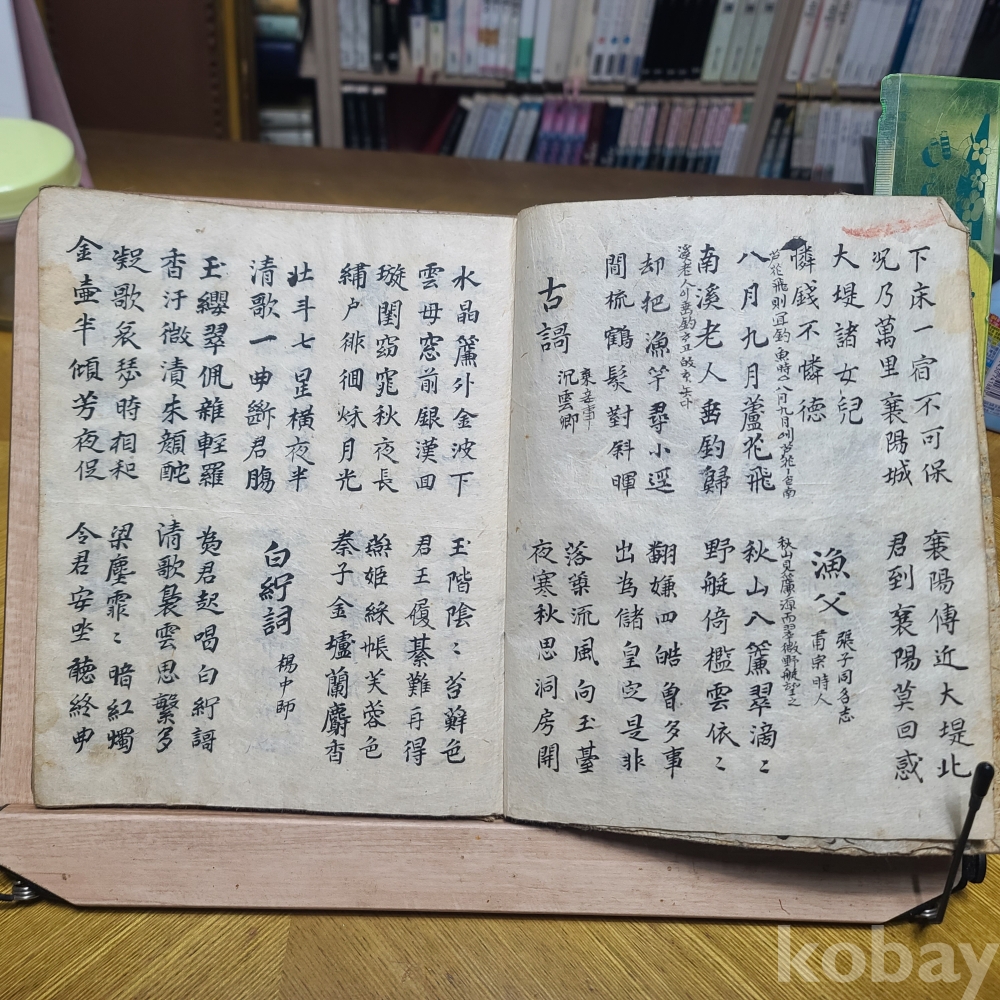 下床一宿不可保
況乃萬里襄陽城
襄陽傳近大堤北
君到襄陽莫回惑
大堤諸女兒
憐錢不憐德
漁父
張子同名志
肅宗時人
八月九月蘆花飛
南溪老人垂釣歸
秋山入簾翠滴〻
野艇倚檻雲依〻
却把漁竿尋小逕
間梳鶴髮對斜暉
翻嫌四皓曾多事
出為儲皇定是非
古謌
沉雲卿
落葉流風向玉臺
夜寒秋思洞房開
水晶簾外金波下
雲母窓前銀漢回
玉階陰〻苔蘚色
君王履綦難再得
璇閨窈窕秋夜長
繡户徘徊秋月光
燕姬綵帳芙蓉色
秦子金爐蘭麝香
北斗七星橫夜半
清歌一曲斷君膓
白紵詞
楊中師
玉纓翠佩雜輕羅
香汗微漬朱顏酡
為君起唱白紵謌
清歌裊雲思繁多
凝歌哀瑟時相和
金壺半傾芳夜促
梁塵霏〻暗紅燭
令君安坐聽終曲
kobay